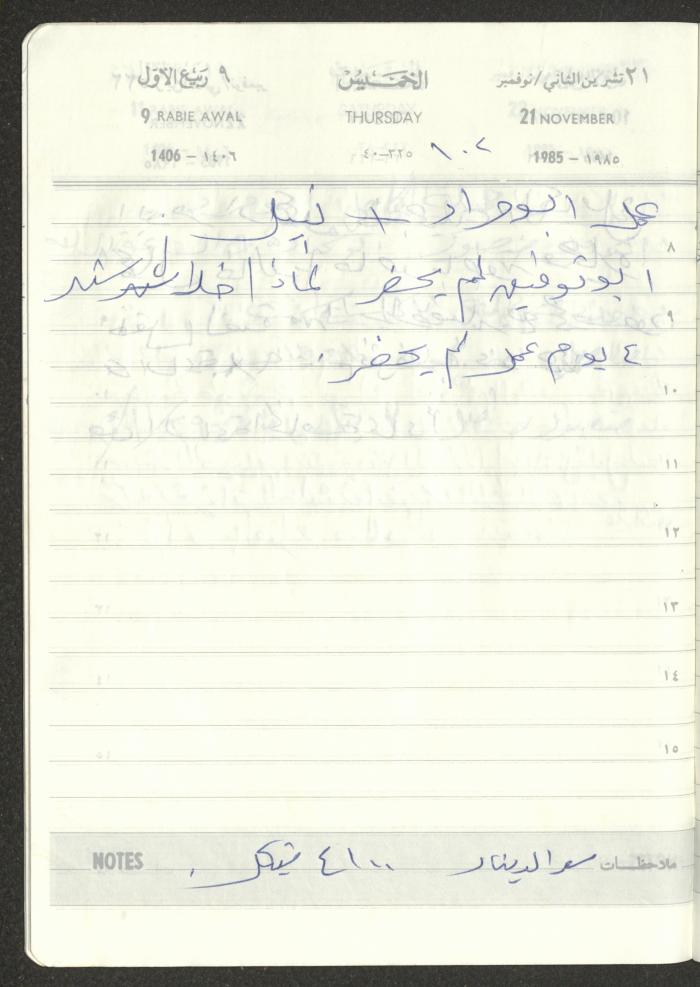 ٢١ تشرين الثاني/نوفمبر الخميس ٩ ربيع الاول
21 NOVEMBER THURSDAY 9 RABIE AWAL
1985 - ١٩٨٥ ٣٢٥-٤٠ 1406 - ١٤٠٦
عمل ابو مراد + نبيل
٨
ابو توفيق لم يحضر لماذا خلال شهر
٩
٤ يوم عمل لم يحضر.
١٠
١١
١٢
١٣
١٤
١٥
ملاحظات سعر الدينار شيكل NOTES